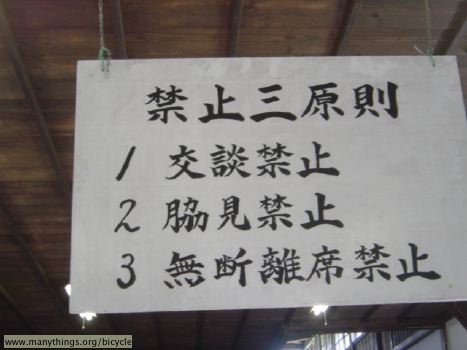 禁止三原則
1 交談禁止
2 脇見禁止
3 無断離席禁止
www.manythings.org/bicycle